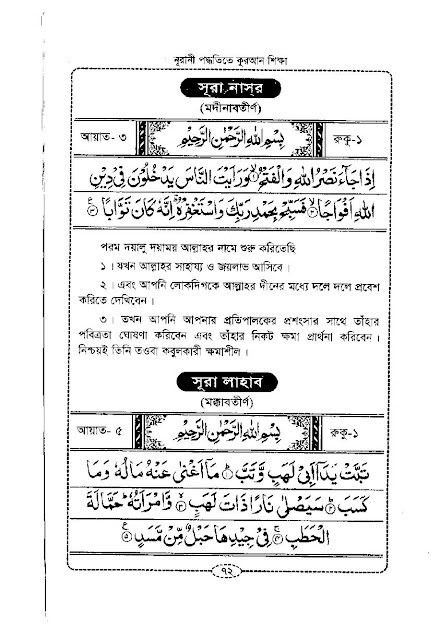 নূরানী পদ্ধতিতে কুরআন শিক্ষা
সূরা নাস্‌র
(মদীনাবতীর্ণ)
আয়াত- ৩
بِسْمِ اللهِ الرَّحْمٰنِ الرَّحِيْمِ
রুকু-১
اِذَا جَآءَ نَصْرُ اللهِ وَالْفَتْحُ ۝١ وَرَاَيْتَ النَّاسَ يَدْخُلُوْنَ فِيْ دِيْنِ
اللهِ اَفْوَاجًا ۝٢ فَسَبِّحْ بِحَمْدِ رَبِّكَ وَاسْتَغْفِرْهُ اِنَّهٗ كَانَ تَوَّابًا ۝٣
পরম দয়ালু দয়াময় আল্লাহর নামে শুরু করিতেছি
১ । যখন আল্লাহর সাহায্য ও জয়লাভ আসিবে ।
২ । এবং আপনি লোকদিগকে আল্লাহর দীনের মধ্যে দলে দলে প্রবেশ
করিতে দেখিবেন ।
৩ । তখন আপনি আপনার প্রতিপালকের প্রশংসার সাথে তাঁহার
পবিত্রতা ঘোষণা করিবেন এবং তাঁহার নিকট ক্ষমা প্রার্থনা করিবেন ।
নিশ্চয়ই তিনি তওবা কবুলকারী ক্ষমাশীল ।
সূরা লাহাব
(মক্কাবতীর্ণ)
আয়াত- ৫
بِسْمِ اللهِ الرَّحْمٰنِ الرَّحِيْمِ
রুকু-১
تَبَّتْ يَدَآ اَبِيْ لَهَبٍ وَّتَبَّ ۝١ مَآ اَغْنٰى عَنْهُ مَالُهٗ وَمَا
كَسَبَ ۝٢ سَيَصْلٰى نَارًا ذَاتَ لَهَبٍ ۝٣ وَّامْرَاَتُهٗ حَمَّالَةَ
الْحَطَبِ ۝٤ فِيْ جِيْدِهَا حَبْلٌ مِّنْ مَّسَدٍ ۝٥
৭২